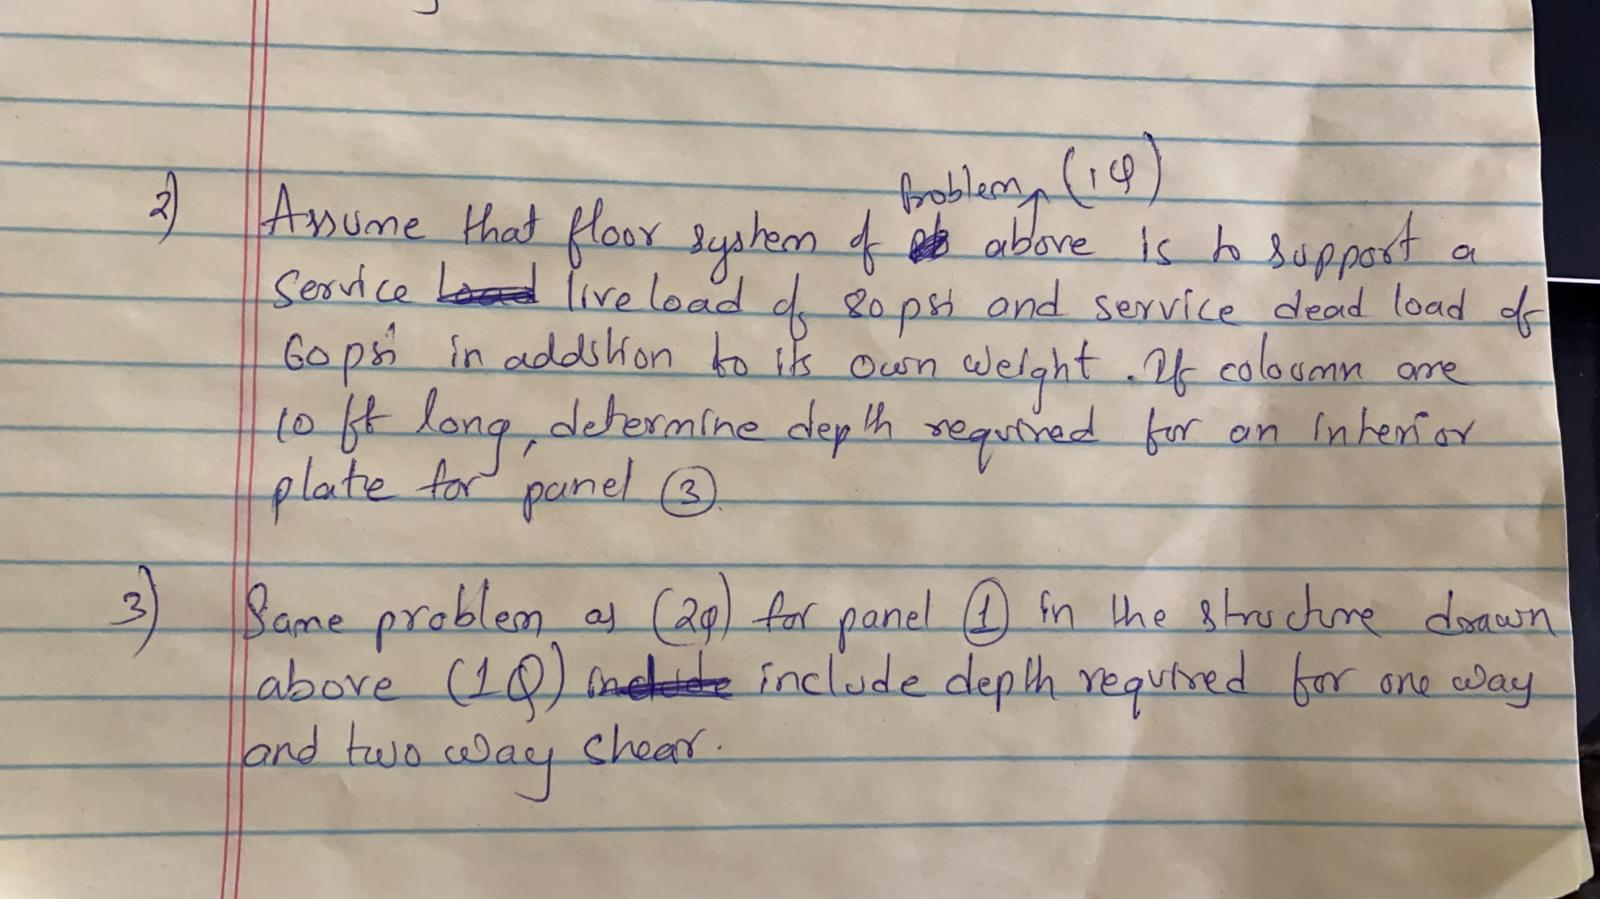 Problem (1Q)
2) Assume that floor system of above is to support a
Service live load of 80 psi and service dead load of
60 psi in addition to its own weight. If coloumn are
10 ft long, determine depth required for an interior
plate for panel ③.
3) Same problem as (2Q) for panel ① in the structure drawn
above (1Q) include include depth required for one way
and two way shear.